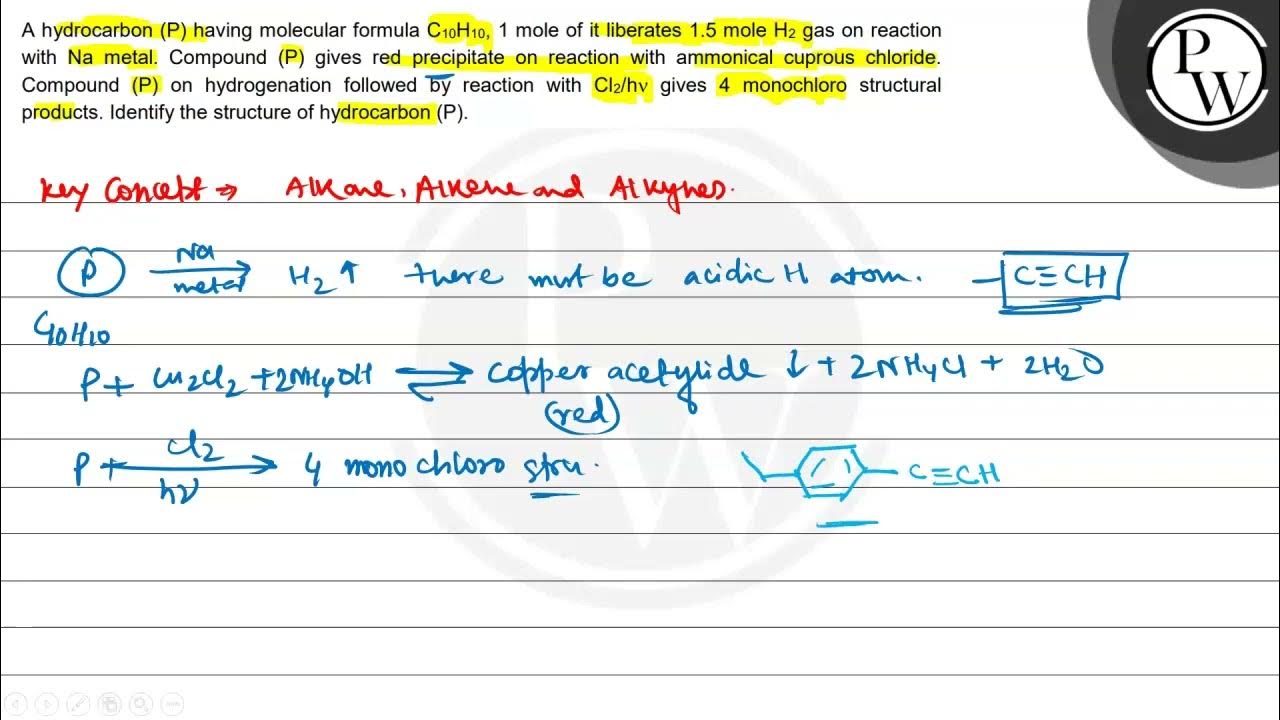 A hydrocarbon (P) having molecular formula C₁₀H₁₀, 1 mole of it liberates 1.5 mole H₂ gas on reaction
with Na metal. Compound (P) gives red precipitate on reaction with ammonical cuprous chloride.
Compound (P) on hydrogenation followed by reaction with Cl₂/hν gives 4 monochloro structural
products. Identify the structure of hydrocarbon (P).
P
W
Key Concept ⇒ Alkane, Alkene and Alkynes.
P Na metal → H₂↑ there must be acidic H atom. -C≡CH
C₁₀H₁₀
P + Cu₂Cl₂ + 2NH₄OH ⇌ copper acetylide ↓ + 2NH₄Cl + 2H₂O
(red)
P + Cl₂ hν → 4 mono chloro stru.
C≡CH